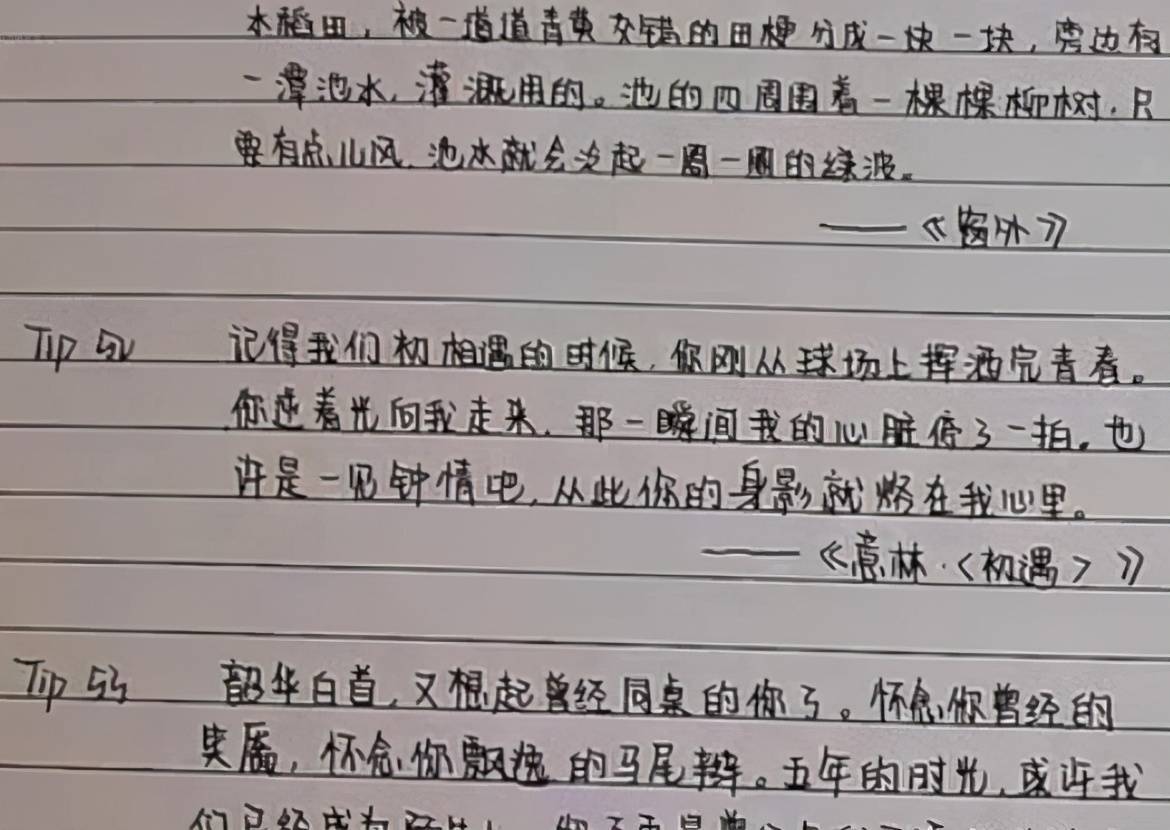 水稻田，被一道道青黄交错的田梗分成一块一块，旁边有
一潭池水，灌溉用的。池的四周围着一棵棵柳树，只
要有点儿风，池水就会泛起一圈一圈的绿波。
——《窗外》
Tip 52 记得我们初相遇的时候，你刚从球场上挥洒完青春。
你逆着光向我走来，那一瞬间我的心脏停了一拍。也
许是一见钟情吧，从此你的身影就烙在我心里。
——《意林·〈初遇〉》
Tip 53 韶华白首，又想起曾经同桌的你了。怀念你曾经的
笑靥，怀念你飘逸的马尾辫。五年的时光，或许我
们已经成为陌生人